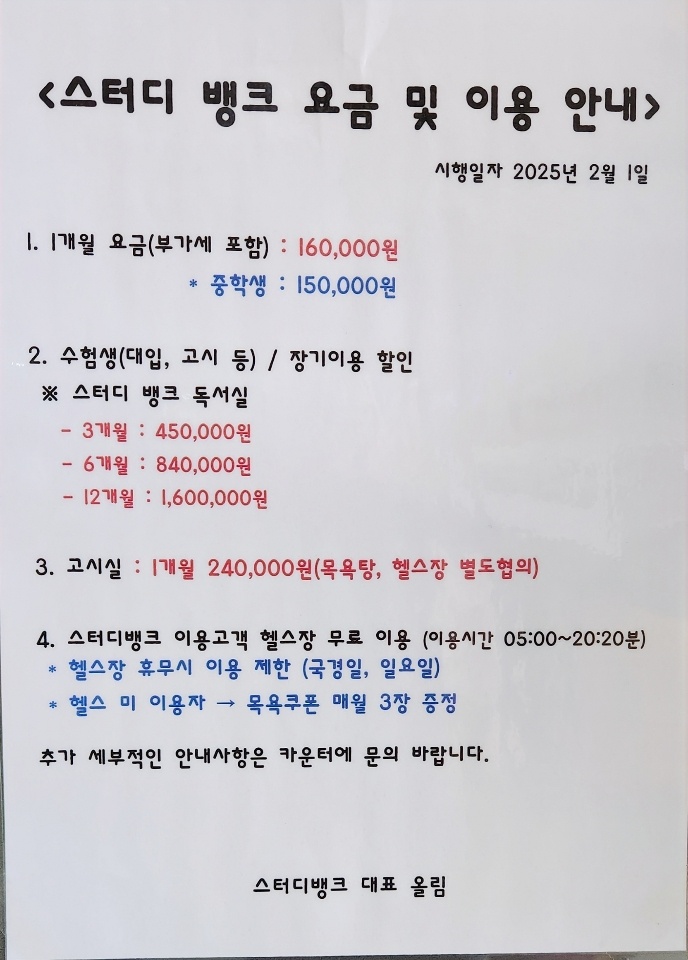 <스터디 뱅크 요금 및 이용 안내>
시행일자 2025년 2월 1일
1. 1개월 요금(부가세 포함) : 160,000원
* 중학생 : 150,000원
2. 수험생(대입, 고시 등) / 장기이용 할인
※ 스터디 뱅크 독서실
- 3개월 : 450,000원
- 6개월 : 840,000원
- 12개월 : 1,600,000원
3. 고시실 : 1개월 240,000원(목욕탕, 헬스장 별도협의)
4. 스터디뱅크 이용고객 헬스장 무료 이용 (이용시간 05:00~20:20분)
* 헬스장 휴무시 이용 제한 (국경일, 일요일)
* 헬스 미 이용자 → 목욕쿠폰 매월 3장 증정
추가 세부적인 안내사항은 카운터에 문의 바랍니다.
스터디뱅크 대표 올림